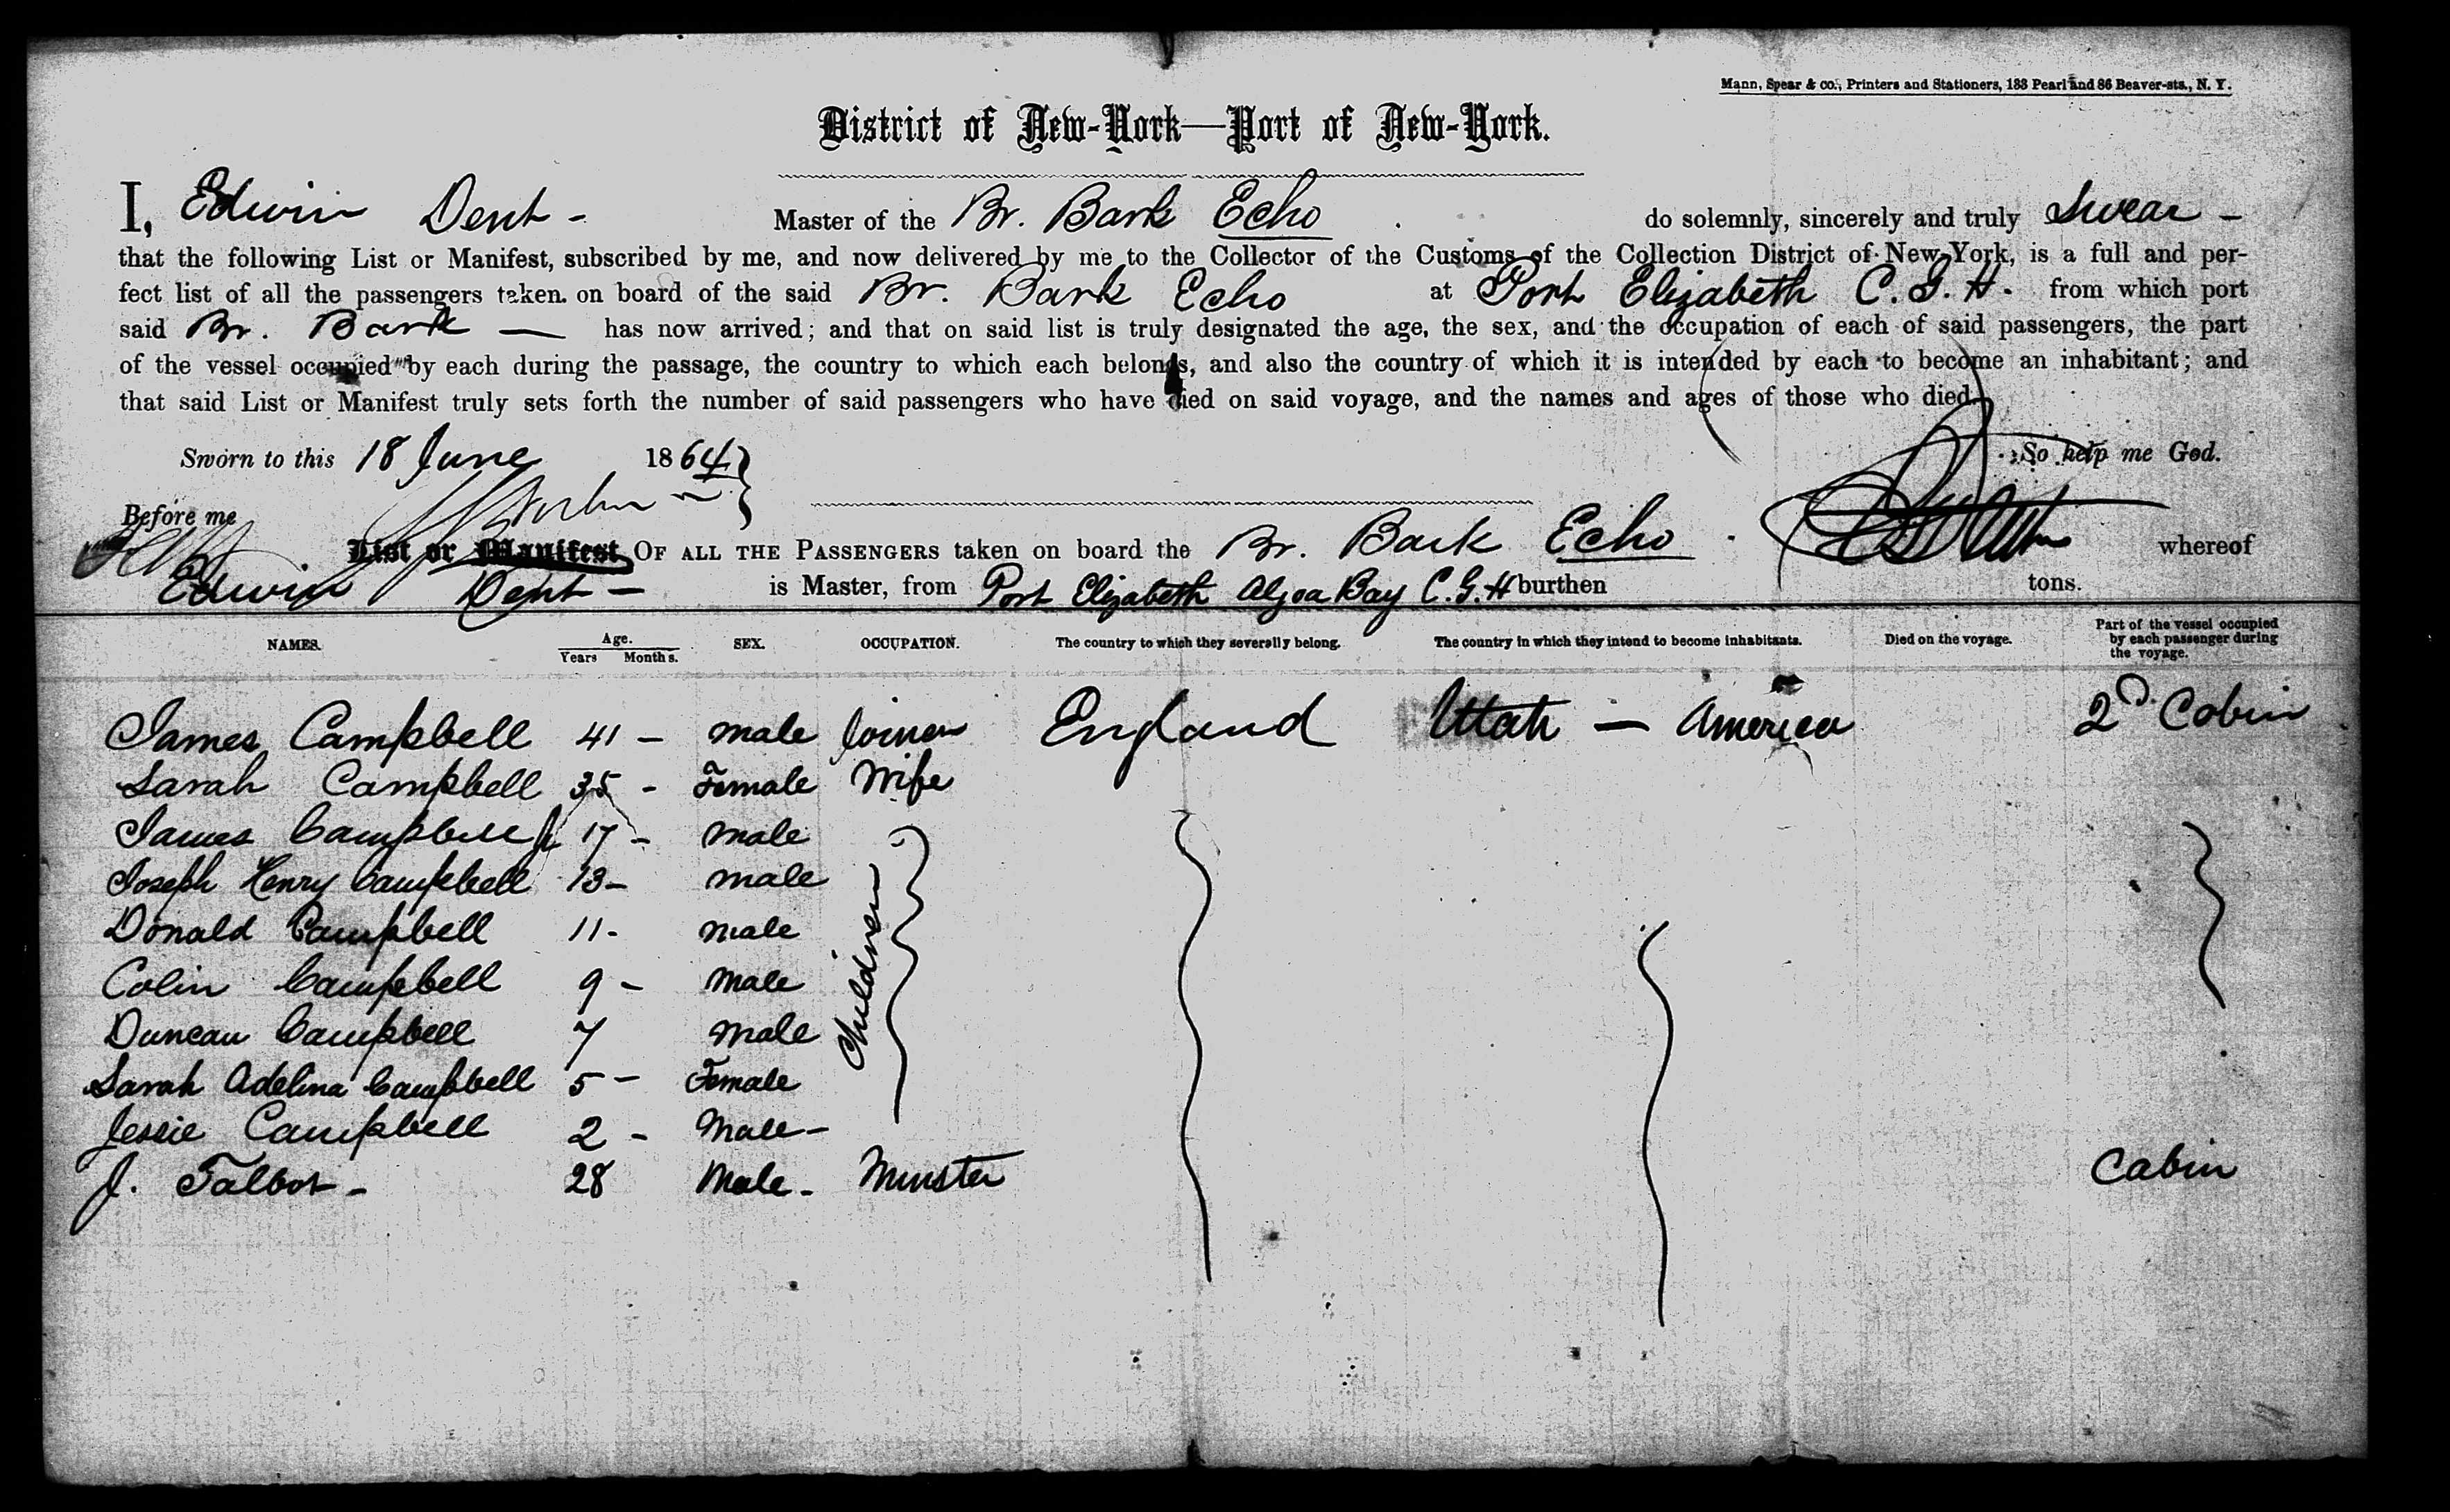 Mann, Spear & co., Printers and Stationers, 133 Pearl and 86 Beaver-sts., N. Y.
District of New-York—Port of New-York.
I, Edwin Dent - Master of the Br. Bark Echo do solemnly, sincerely and truly Swear -
that the following List or Manifest, subscribed by me, and now delivered by me to the Collector of the Customs of the Collection District of New-York, is a full and per-
fect list of all the passengers taken on board of the said Br. Bark Echo at Port Elizabeth C. G. H. from which port
said Br. Bark — has now arrived; and that on said list is truly designated the age, the sex, and the occupation of each of said passengers, the part
of the vessel occupied by each during the passage, the country to which each belongs, and also the country of which it is intended by each to become an inhabitant; and
that said List or Manifest truly sets forth the number of said passengers who have died on said voyage, and the names and ages of those who died.
Sworn to this 18 June 1864 So help me God.
Before me
List or Manifest OF ALL THE PASSENGERS taken on board the Br. Bark Echo whereof
Edwin Dent — is Master, from Port Elizabeth Algoa Bay C. G. H burthen tons.
NAMES. Age. Years Months. SEX. OCCUPATION. The country to which they severally belong. The country in which they intend to become inhabitants. Died on the voyage. Part of the vessel occupied by each passenger during the voyage.
James Campbell 41 — male Joiner England Utah — America 2D Cabin
Sarah Campbell 35 - Female Wife
James Campbell Jr 17 - male
Joseph Henry Campbell 13 - male
Donald Campbell 11 - male
Colin Campbell 9 - male
Children
Duncan Campbell 7 male
Sarah Adelina Campbell 5 - Female
Jessie Campbell 2 - Male -
J. Talbot - 28 Male - Minster Cabin